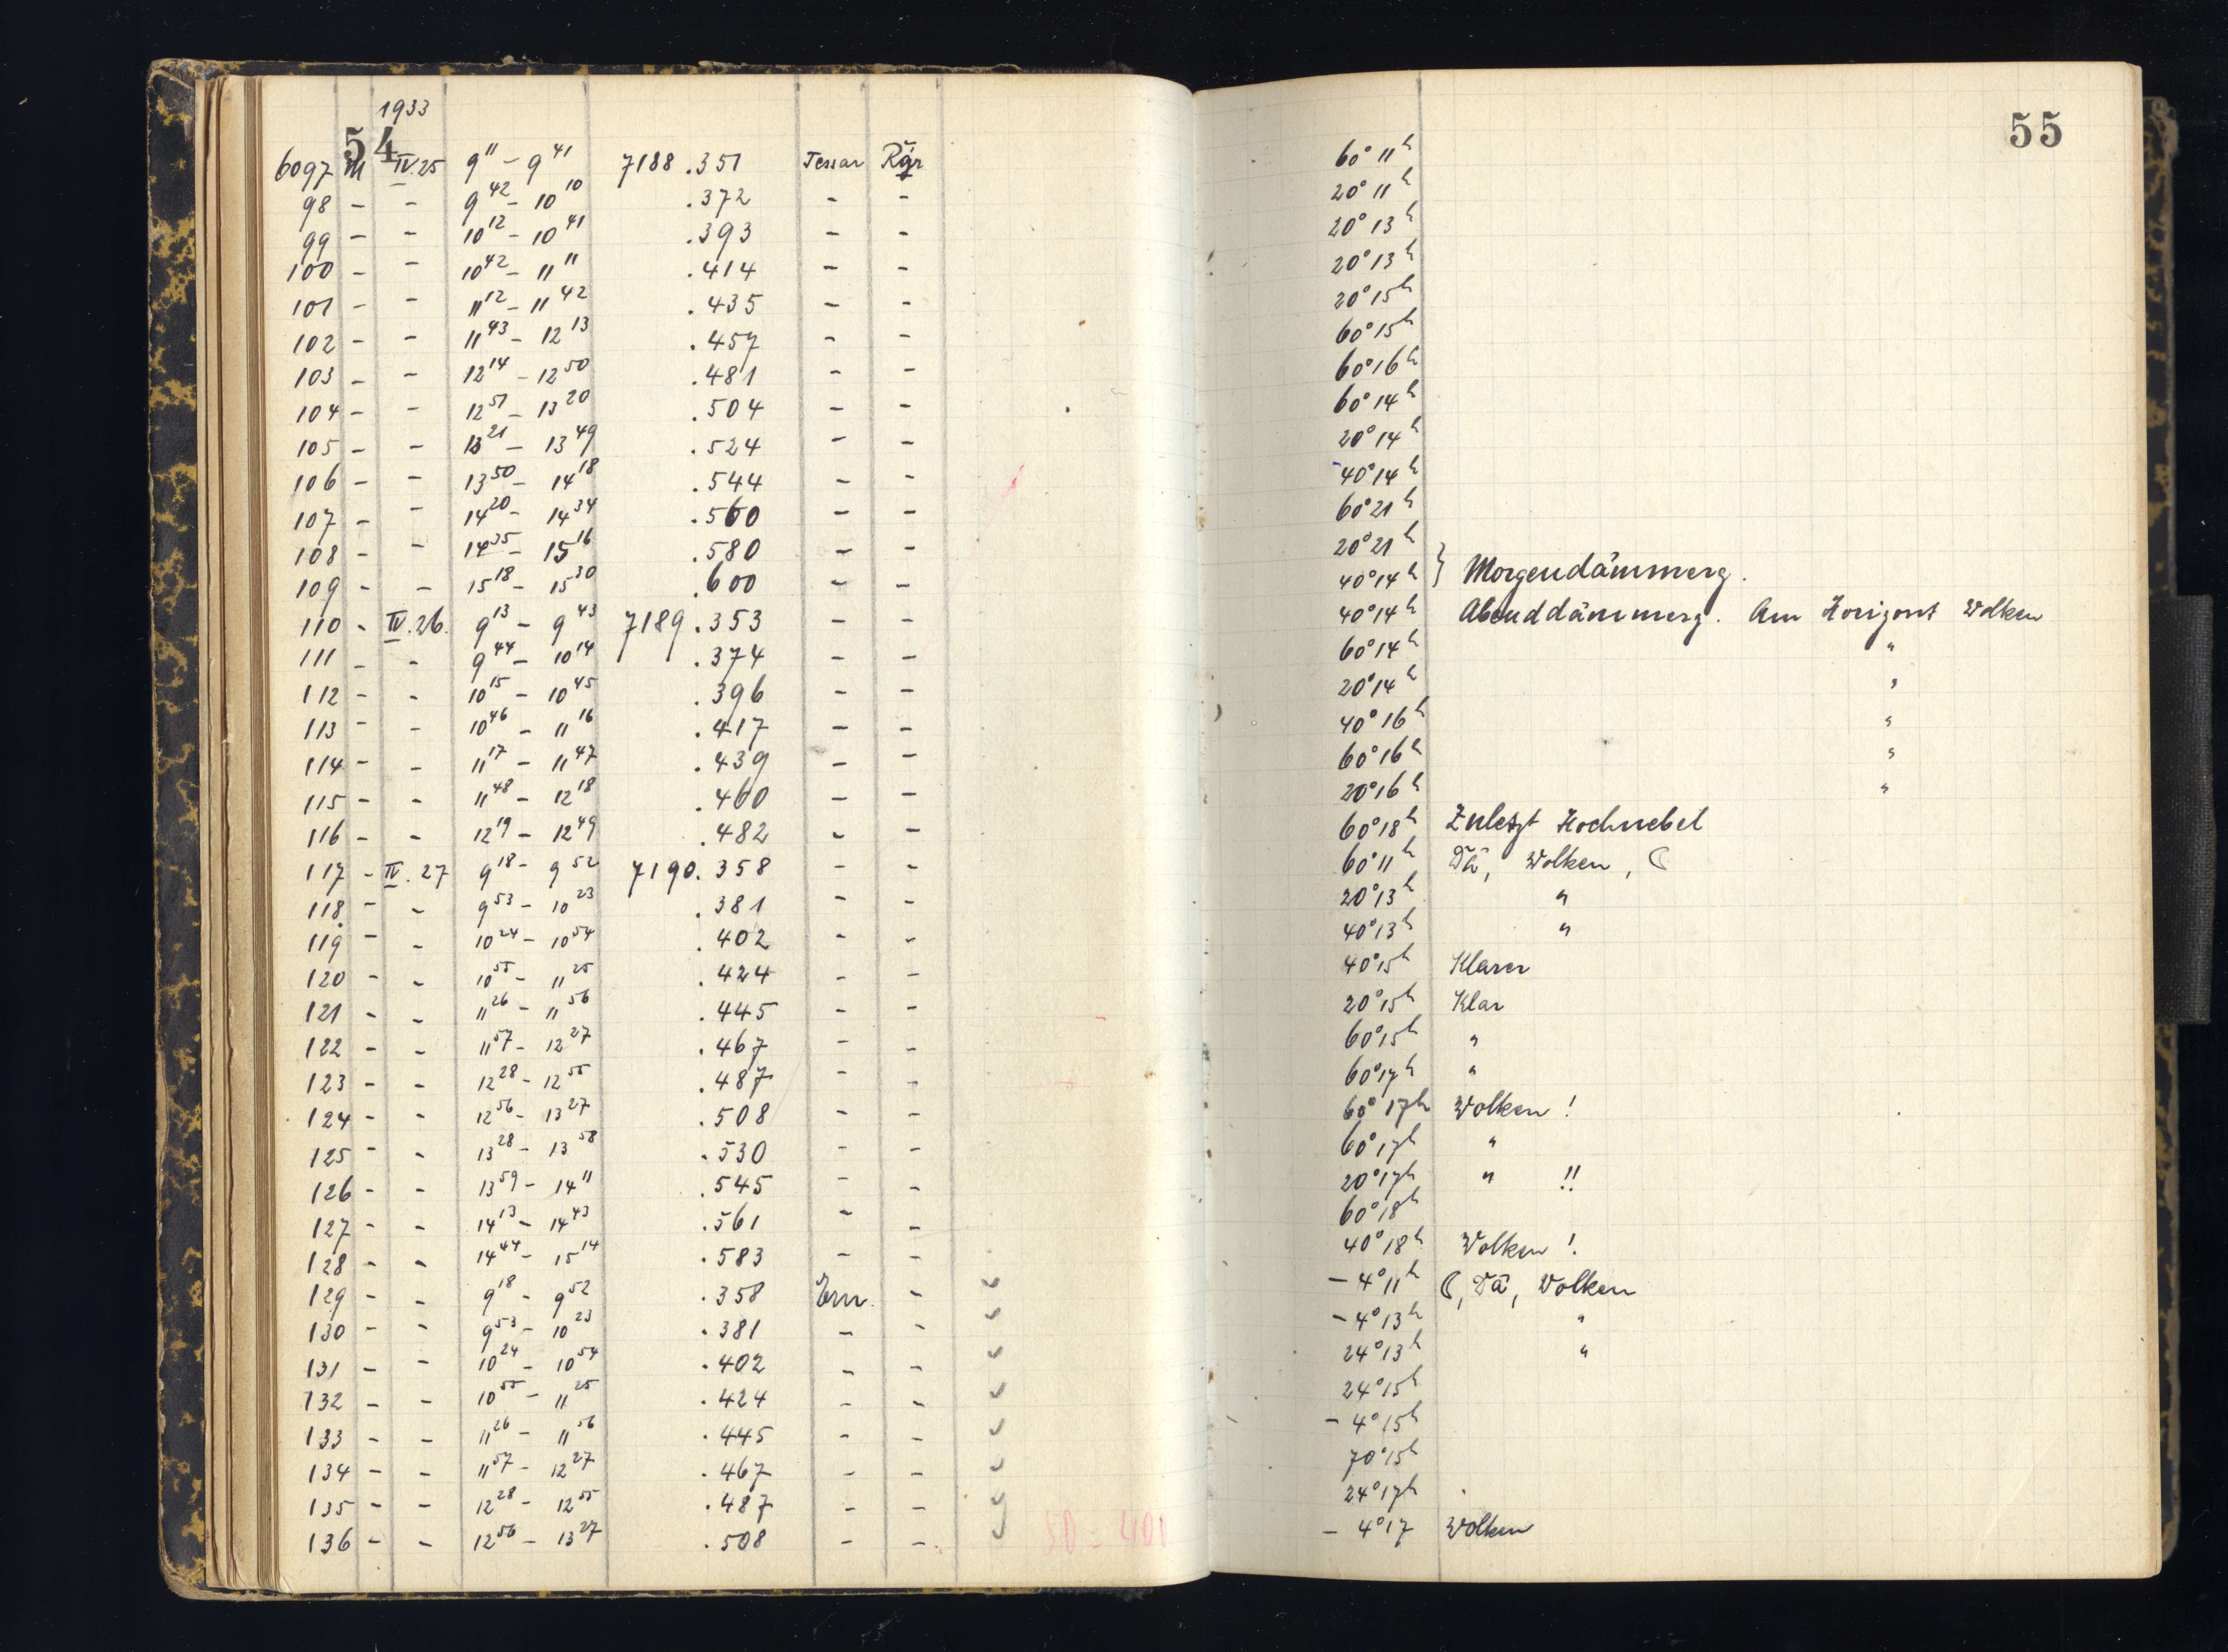 1933
54
6097 M IV.25 9¹¹ – 9⁴¹ 7188 .351 Tessar Rgr
98 – – 9⁴² – 10¹⁰ .372 – –
99 – – 10¹² – 10⁴¹ .393 – –
100 – – 10⁴² – 11¹¹ .414 – –
101 – – 11¹² – 11⁴² .435 – –
102 – – 11⁴³ – 12¹³ .457 – –
103 – – 12¹⁴ – 12⁵⁰ .481 – –
104 – – 12⁵¹ – 13²⁰ .504 – –
105 – – 13²¹ – 13⁴⁹ .524 – –
106 – – 13⁵⁰ – 14¹⁸ .544 – –
107 – – 14²⁰ – 14³⁴ .560 – –
108 – – 14³⁵ – 15¹⁶ .580 – –
109 – – 15¹⁸ – 15³⁰ .600 – –
110 – IV.26. 9¹³ – 9⁴³ 7189 .353 – –
111 – – 9⁴⁴ – 10¹⁴ .374 – –
112 – – 10¹⁵ – 10⁴⁵ .396 – –
113 – – 10⁴⁶ – 11¹⁶ .417 – –
114 – – 11¹⁷ – 11⁴⁷ .439 – –
115 – – 11⁴⁸ – 12¹⁸ .460 – –
116 – – 12¹⁹ – 12⁴⁹ .482 – –
117 – IV.27 9¹⁸ – 9⁵² 7190 .358 – –
118 – – 9⁵³ – 10²³ .381 – –
119 – – 10²⁴ – 10⁵⁴ .402 – –
120 – – 10⁵⁵ – 11²⁵ .424 – –
121 – – 11²⁶ – 11⁵⁶ .445 – –
122 – – 11⁵⁷ – 12²⁷ .467 – –
123 – – 12²⁸ – 12⁵⁵ .487 – –
124 – – 12⁵⁶ – 13²⁷ .508 – –
125 – – 13²⁸ – 13⁵⁸ .530 – –
126 – – 13⁵⁹ – 14¹¹ .545 – –
127 – – 14¹³ – 14⁴³ .561 – –
128 – – 14⁴⁴ – 15¹⁴ .583 – –
129 – – 9¹⁸ – 9⁵² .358 Ern. –
130 – – 9⁵³ – 10²³ .381 – –
131 – – 10²⁴ – 10⁵⁴ .402 – –
132 – – 10⁵⁵ – 11²⁵ .424 – –
133 – – 11²⁶ – 11⁵⁶ .445 – –
134 – – 11⁵⁷ – 12²⁷ .467 – –
135 – – 12²⁸ – 12⁵⁵ .487 – –
136 – – 12⁵⁶ – 13²⁷ .508 – –
50 = 400
55
60° 11ʰ
20° 11ʰ
20° 13ʰ
20° 13ʰ
20° 15ʰ
60° 15ʰ
60° 16ʰ
60° 14ʰ
20° 14ʰ
40° 14ʰ
60° 21ʰ
20° 21ʰ
40° 14ʰ } Morgendämmerg.
40° 14ʰ Abenddämmerg. Am Horizont Wolken
60° 14ʰ "
20° 14ʰ "
40° 16ʰ "
60° 16ʰ "
20° 16ʰ "
60° 18ʰ Zuletzt Hochnebel
60° 11ʰ Dä, Wolken, ☾
20° 13ʰ "
40° 13ʰ "
40° 15ʰ Klarer
20° 15ʰ Klar
60° 15ʰ "
60° 17ʰ "
60° 17ʰ Wolken !
60° 17ʰ "
20° 17ʰ " !!
60° 18ʰ
40° 18ʰ Wolken !
– 4° 11ʰ ☾, Dä, Wolken
– 4° 13ʰ "
24° 13ʰ "
24° 15ʰ
– 4° 15ʰ
70° 15ʰ
24° 17ʰ
– 4° 17 Wolken